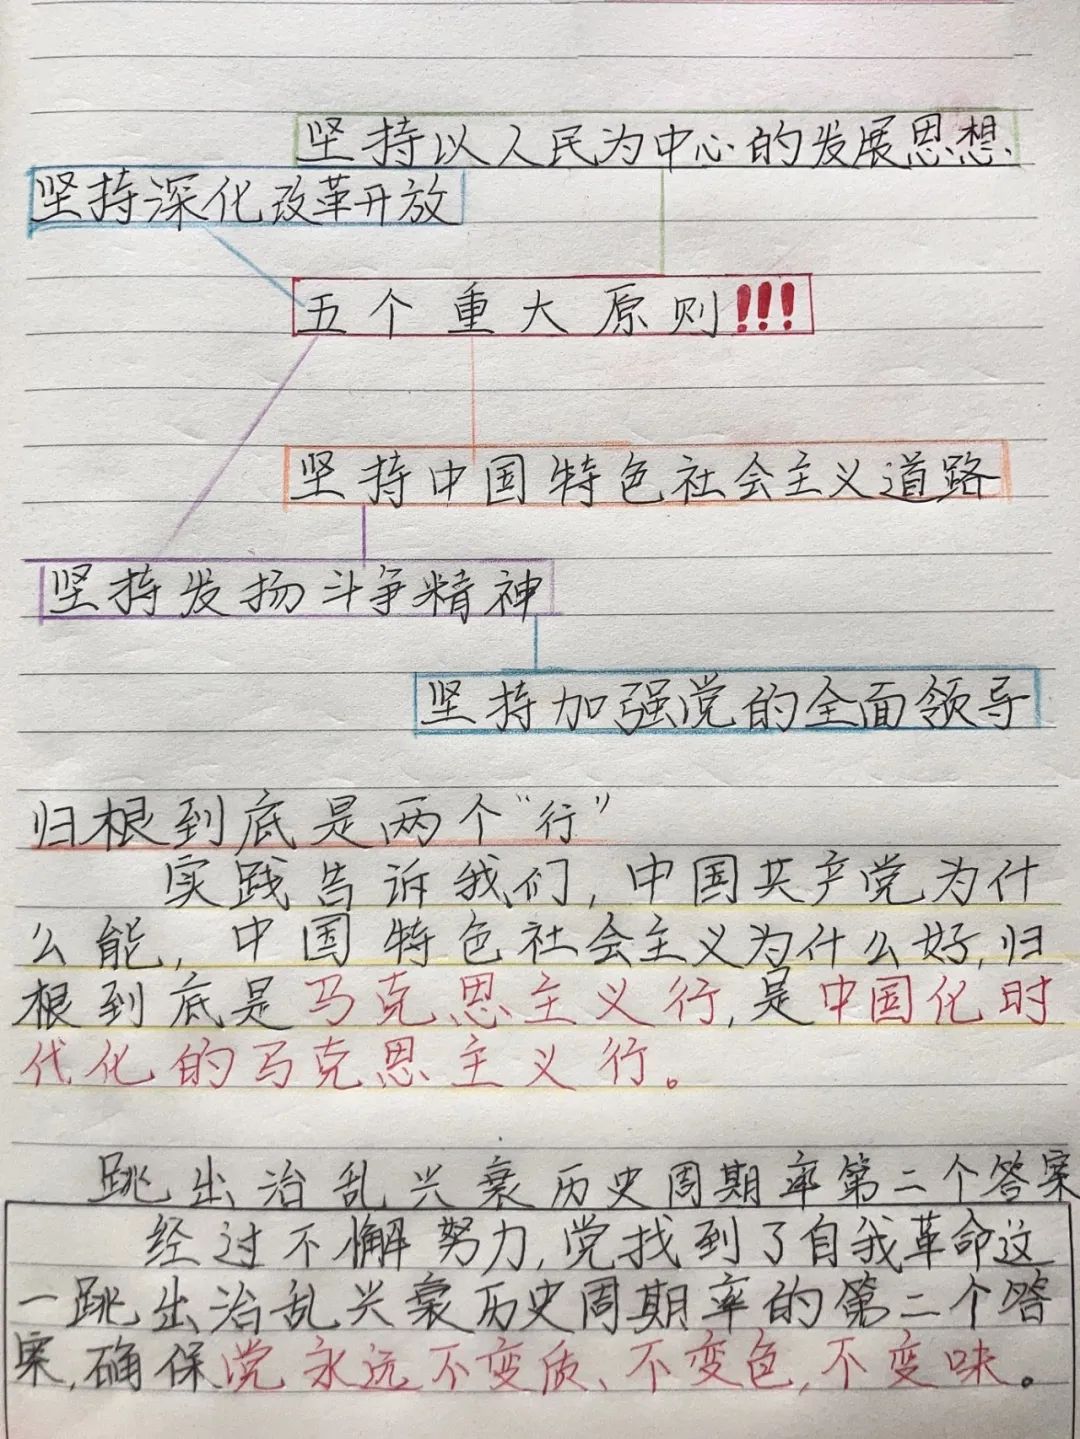 坚持以人民为中心的发展思想
坚持深化改革开放
五个重大原则!!!
坚持中国特色社会主义道路
坚持发扬斗争精神
坚持加强党的全面领导
归根到底是两个“行”
实践告诉我们,中国共产党为什
么能,中国特色社会主义为什么好,归
根到底是马克思主义行,是中国化时
代化的马克思主义行。
跳出治乱兴衰历史周期率第二个答案
经过不懈努力,党找到了自我革命这
一跳出治乱兴衰历史周期率的第二个答
案,确保党永远不变质、不变色,不变味。